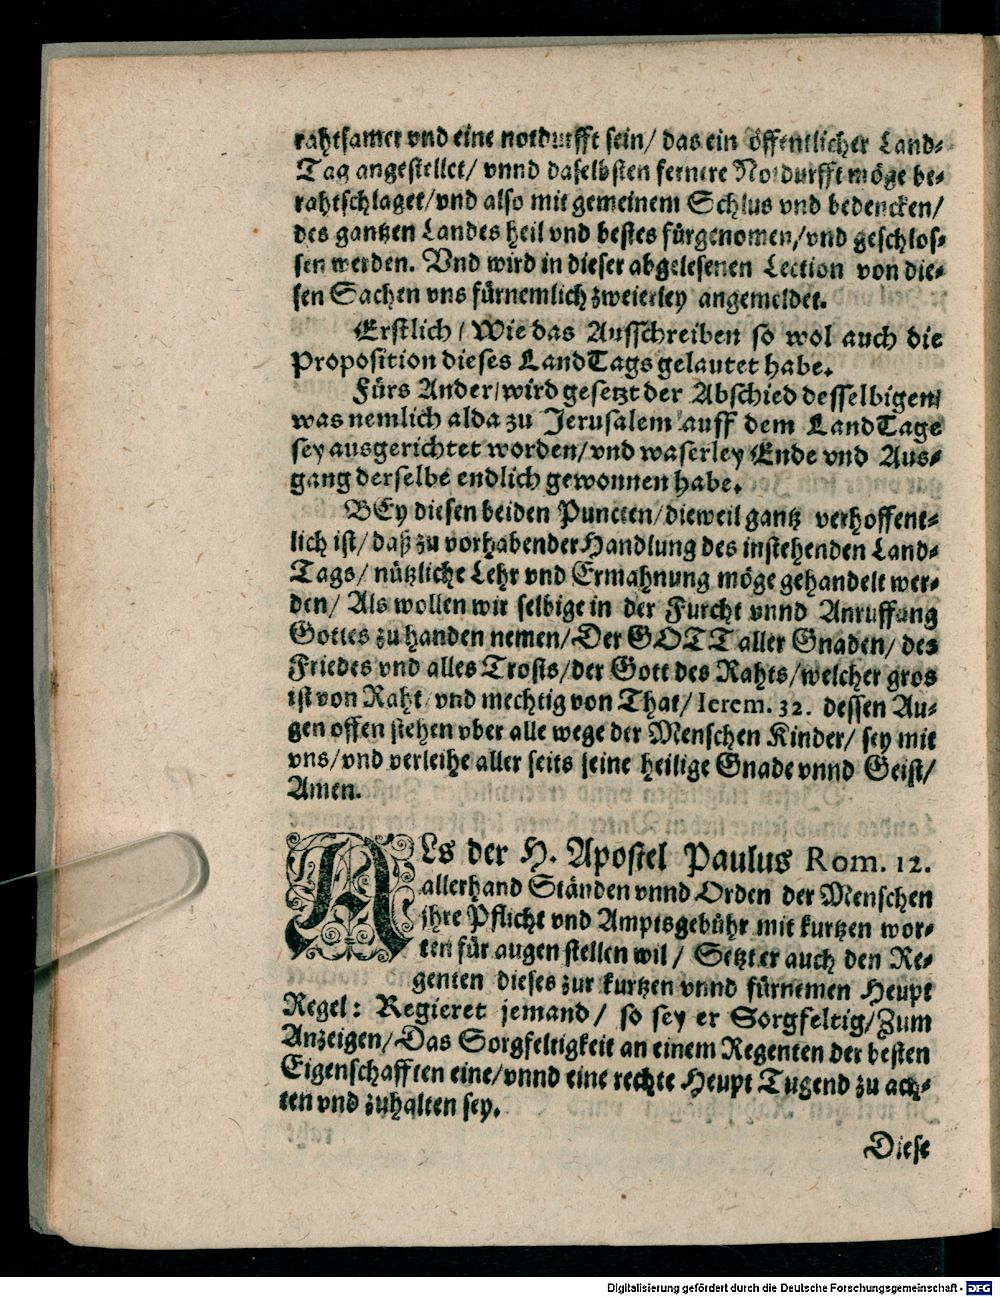 rahtsamer vnd eine notdurfft sein/ das ein öffentlicher Land-
Tag angestellet/ vnnd daselbsten fernere Notdurfft möge be-
rahtschlaget/vnd also mit gemeinem Schlus vnd bedencken/
des gantzen Landes heil vnd bestes fürgenomen/vnd geschlos-
sen werden. Vnd wird in dieser abgelesenen Lection von die-
sen Sachen vns fürnemlich zweierley angemeldet.
Erstlich/ Wie das Ausschreiben so wol auch die
Proposition dieses LandTags gelautet habe.
Fürs Ander/wird gesetzt der Abschied desselbigen/
was nemlich alda zu Jerusalem auff dem LandTage
sey ausgerichtet worden/vnd waserley Ende vnd Aus-
gang derselbe endlich gewonnen habe.
BEy diesen beiden Puncten/dieweil gantz verhoffent-
lich ist/daß zu vorhabender Handlung des instehenden Land-
Tags/nützliche Lehr vnd Ermahnung möge gehandelt wer-
den/ Als wollen wir selbige in der Furcht vnnd Anruffung
Gottes zu handen nemen/Der GOTT aller Gnaden/ des
Friedes vnd alles Trosts/der Gott des Rahts/welcher gros
ist von Raht vnd mechtig von That/Ierem. 32. dessen Au-
gen offen stehen vber alle wege der Menschen Kinder/ sey mit
vns/vnd verleihe aller seits seine heilige Gnade vnnd Geist/
Amen.
ALs der H. Apostel Paulus Rom. 12.
allerhand Ständen vnnd Orden der Menschen
ihre Pflicht vnd Amptsgebühr mit kurtzen wor-
ten für augen stellen wil/ Setzt er auch den Re-
genten dieses zur kurtzen vnnd fürnemen Heupt
Regel: Regieret jemand/ so sey er Sorgfeltig/Zum
Anzeigen/Das Sorgfeltigkeit an einem Regenten der besten
Eigenschafften eine/vnnd eine rechte Heupt Tugend zu ach-
ten vnd zuhalten sey.
Diese
Digitalisierung gefördert durch die Deutsche Forschungsgemeinschaft - DFG